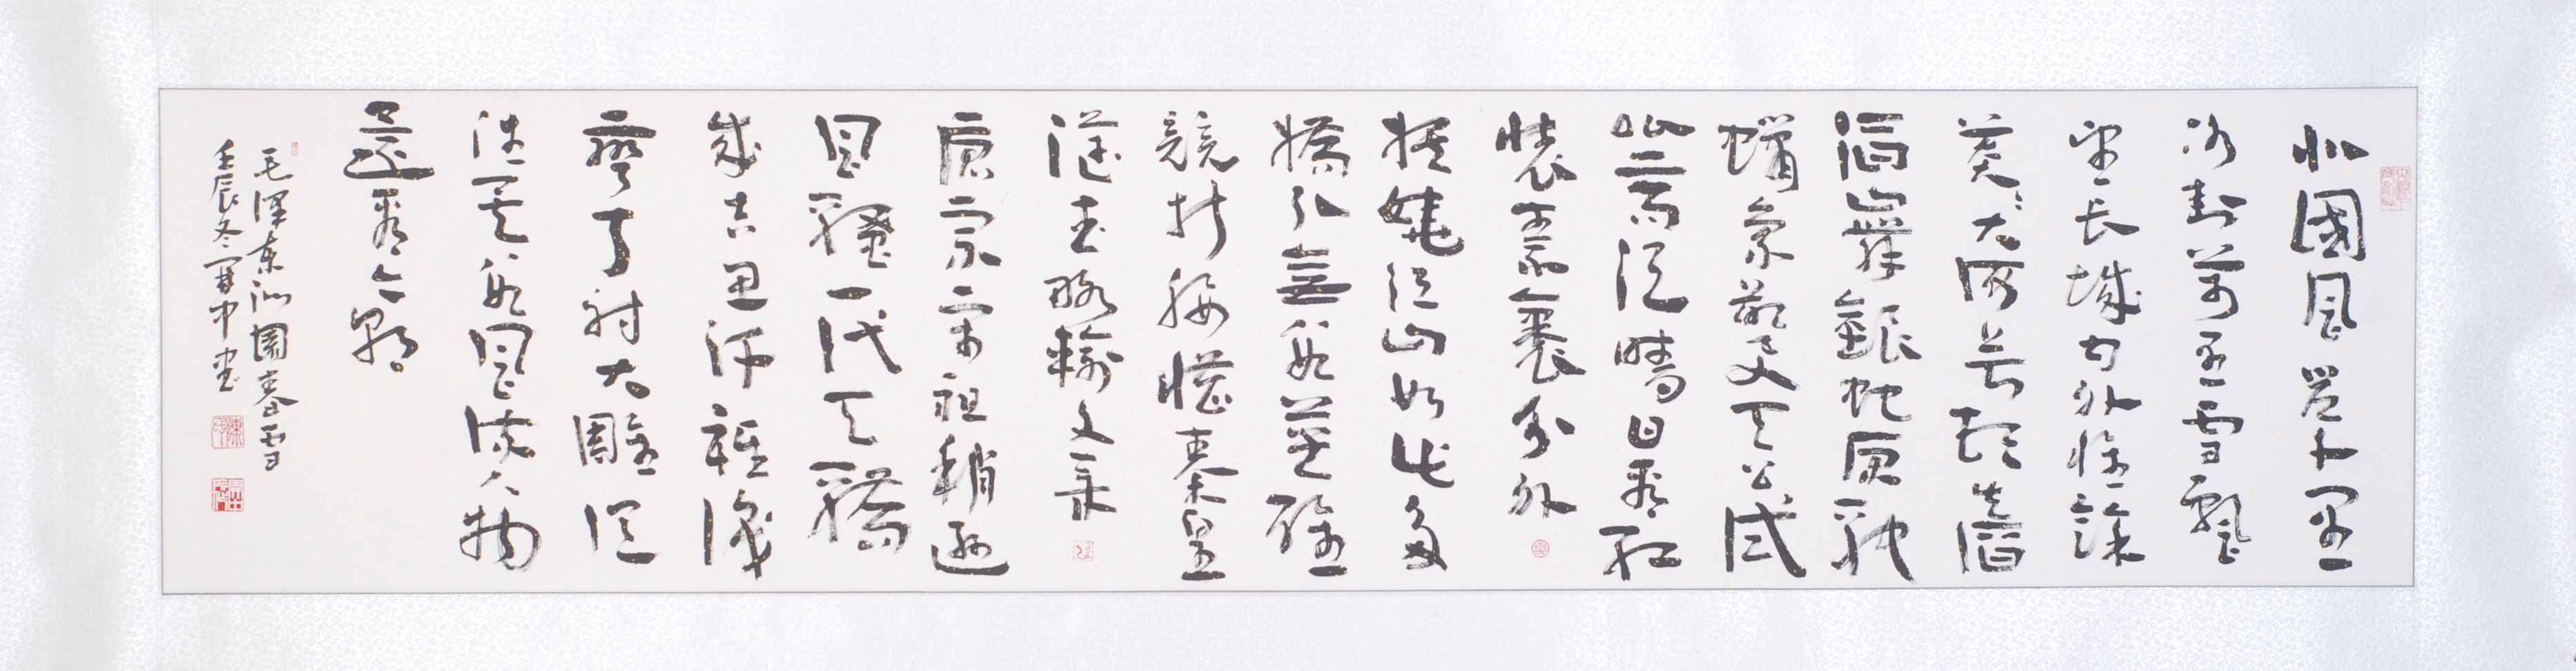 北國風光千里
冰封萬里雪飄
望長城内外惟餘
莽〻大河上下頓失滔
滔山舞銀蛇原馳
蠟象欲與天公試
比高須晴日看紅
裝素裹分外
妖嬈江山如此多
嬌引無數英雄
競折腰惜秦皇
漢武略輸文采
唐宗宋祖稍遜
風騷一代天驕
成吉思汗祇識
彎弓射大雕俱
往矣數風流人物
還看今朝
毛澤東沁園春雪
壬辰冬中書